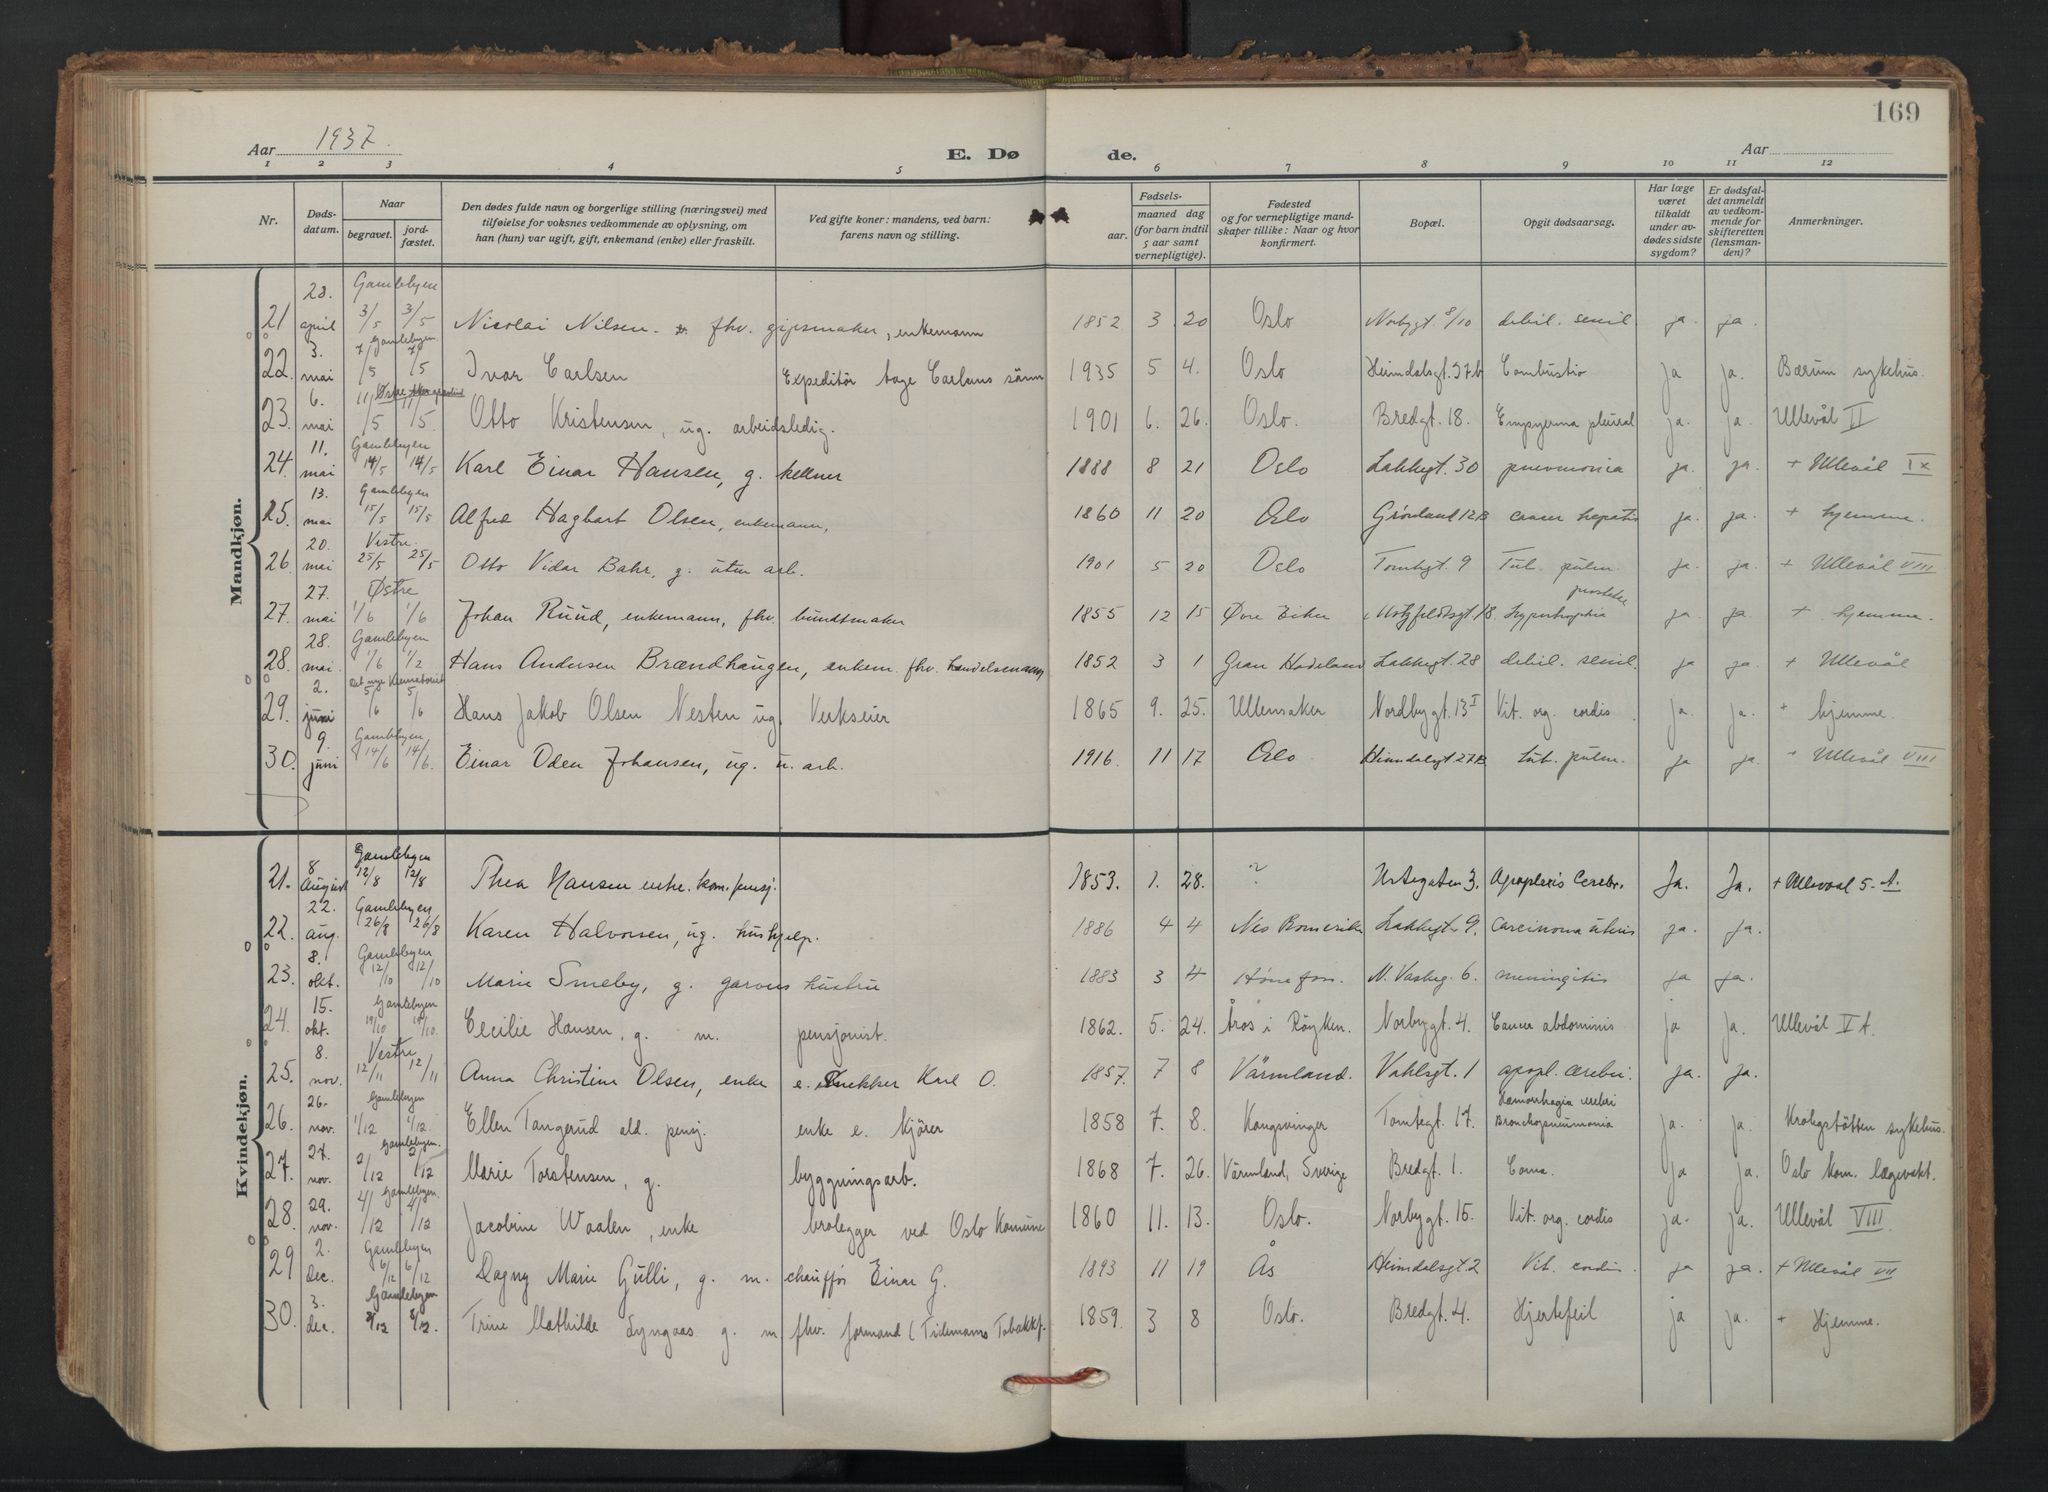 169
Aar 1937. E. Dø de. Aar
1 2 3 4 5 6 7 8 9 10 11 12
Nr. Døds-datum. Naar begravet. jord-fæstet. Den dødes fulde navn og borgerlige stilling (næringsvei) med tilføielse for voksnes vedkommende av oplysning, om han (hun) var ugift, gift, enkemand (enke) eller fraskilt. Ved gifte koner: mandens, ved barn: farens navn og stilling. Fødsels- aar. maaned dag (for barn indtil 5 aar samt vernepligtige). Fødested og for vernepligtige mand-skaper tillike: Naar og hvor konfirmert. Bopæl. Opgit dødsaarsag. Har læge været tilkaldt under av-dødes sidste sygdom? Er dødsfal-det anmeldt av vedkom-mende for skifteretten (lensman-den)? Anmerkninger.
Mandkjøn.
21 28. april Gamlebyen 3/5 3/5 Nicolai Nilsen fhv. gipsmaker, enkemann 1852 3 20 Oslo Norbygt. 8/10 debil. senil ja. ja.
22. 3. mai Gamlebyen 7/5 7/5 Ivar Carlsen Expeditør Aage Carlsens sønn 1935 5 4. Oslo Heimdalsgt. 37b Combustio ja ja. Bærum sykehus.
23. 6. mai 11/5 11/5 Otto Kristensen, ug. arbeidsledig. 1901 6. 26. Oslo. Bredgt. 18. Empyema pleural ja. ja. Ullevål II
24. 11. mai Gamlebyen 14/5 14/5 Karl Einar Hansen, g. kellner 1888 8 21 Oslo Lakkegt. 30 pneumonia ja. ja. + Ullevål IX
25. 13. mai Gamlebyen 15/5 15/5 Alfred Hagbart Olsen, enkemann, 1860 11 20 Oslo Grønland 12B cancer hepatis ja. ja. + hjemme.
26. 20. mai Vestre. 25/5 25/5 Otto Vidar Bahr, g. uten arb. 1901 5 20 Oslo Tomtegt. 9 Tub. pulm. ja. ja. + Ullevål VIII
27. 27. mai Østre 1/6 1/6 Johan Ruud, enkemann, fhv. buntmaker 1855 12 15 Øvre Eiker Motzfeldtsgt 18 hypertrophia prostatae ja ja. + hjemme.
28. 28. mai. Gamlebyen 1/6 1/2 Hans Andersen Brændhaugen, enkem. fhv. handelsmann 1852 3 1 Gran Hadeland Lakkegt. 28 debil. senil. ja ja. + Ullevål
29. 2. juni Det nye Krematoriet 5/6 5/6 Hans Jakob Olsen Nesten ug. Verkseier 1865 9. 25. Ullensaker Nordbygt. 13 I Vit. org. cordis ja. ja. + hjemme.
30. 9. juni Gamlebyen 14/6 14/6. Einar Oden Johansen, ug. u. arb. 1916. 11 17 Oslo Heimdalsgt 27B tub. pulm. ja ja. + Ullevål VIII
Kvindekjøn.
21. 8 August Gamlebyen 12/8 12/8 Thea Hansen enke. kom. pensj. 1853. 1. 28. ? Urtegaten 3. Apoplexis Cerebr. Ja. Ja. + Ullevaal 5. A.
22. 22. aug. Gamlebyen 26/8 26/8 Karen Halvorsen, ug. hushjelp. 1886 4 4 Nes Romerike Lakkegt 9. Carcinoma uteris ja. ja.
23. 8. okt. Gamlebyen 12/10 12/10 Marie Smeby, g. garvers hustru 1883 3 4 Hønefoss. N. Vaskeg. 6. meningitis ja ja.
24. 15. okt. Gamlebyen 19/10 19/10. Cecilie Hansen, g. m. pensjonist. 1862. 5. 24. Åros i Røyken. Norbygt. 4. Cancer abdominis ja ja. Ullevål V A.
25. 8. nov. Vestre 12/11 12/11 Anna Christine Olsen, enke e. snekker Karl O. 1857. 7 8 Värmland. Vahlsgt. 1 apopl. cerebri. ja. ja.
26. 26. nov. Gamlebyen 1/12 1/12. Ellen Tangerud ald. pensj. enke e. kjører 1858 7. 8. Kongsvinger Tomtegt. 17. Hæmorrhagia cerebri Bronchopneumonia ja. ja. Krohgstøtten sykehus.
27. 27. nov. Gamlebyen. 2/12 2/12 Marie Torstensen, g. byggningsarb. 1868 7. 26. Värmland, Sverige Bredgt. 1. Coma. ja ja. Oslo kom. lægevakt.
28. 29. nov. Gamlebyen. 4/12 4/12 Jacobine Waalen, enke brolegger ved Oslo Komune 1860 11. 13. Oslo. Norbygt. 15. Vit. org. cordis ja. ja. Ullevål VIII.
29 2. dec. Gamlebyen 6/12 6/12 Dagny Marie Gulli, g. m. chauffør Einar G. 1893 11 19 Ås Heimdalsgt. 2 Vit. cordis. ja ja. + Ullevål VII
30. 3. dec. Gamlebyen 8/12 8/12. Trine Mathilde Lyngaas g. m. fhv. formand (Tidemanns Tobakkf. 1859. 3 8 Oslo. Bredgt. 4. Hjertefeil ja ja. + Hjemme.